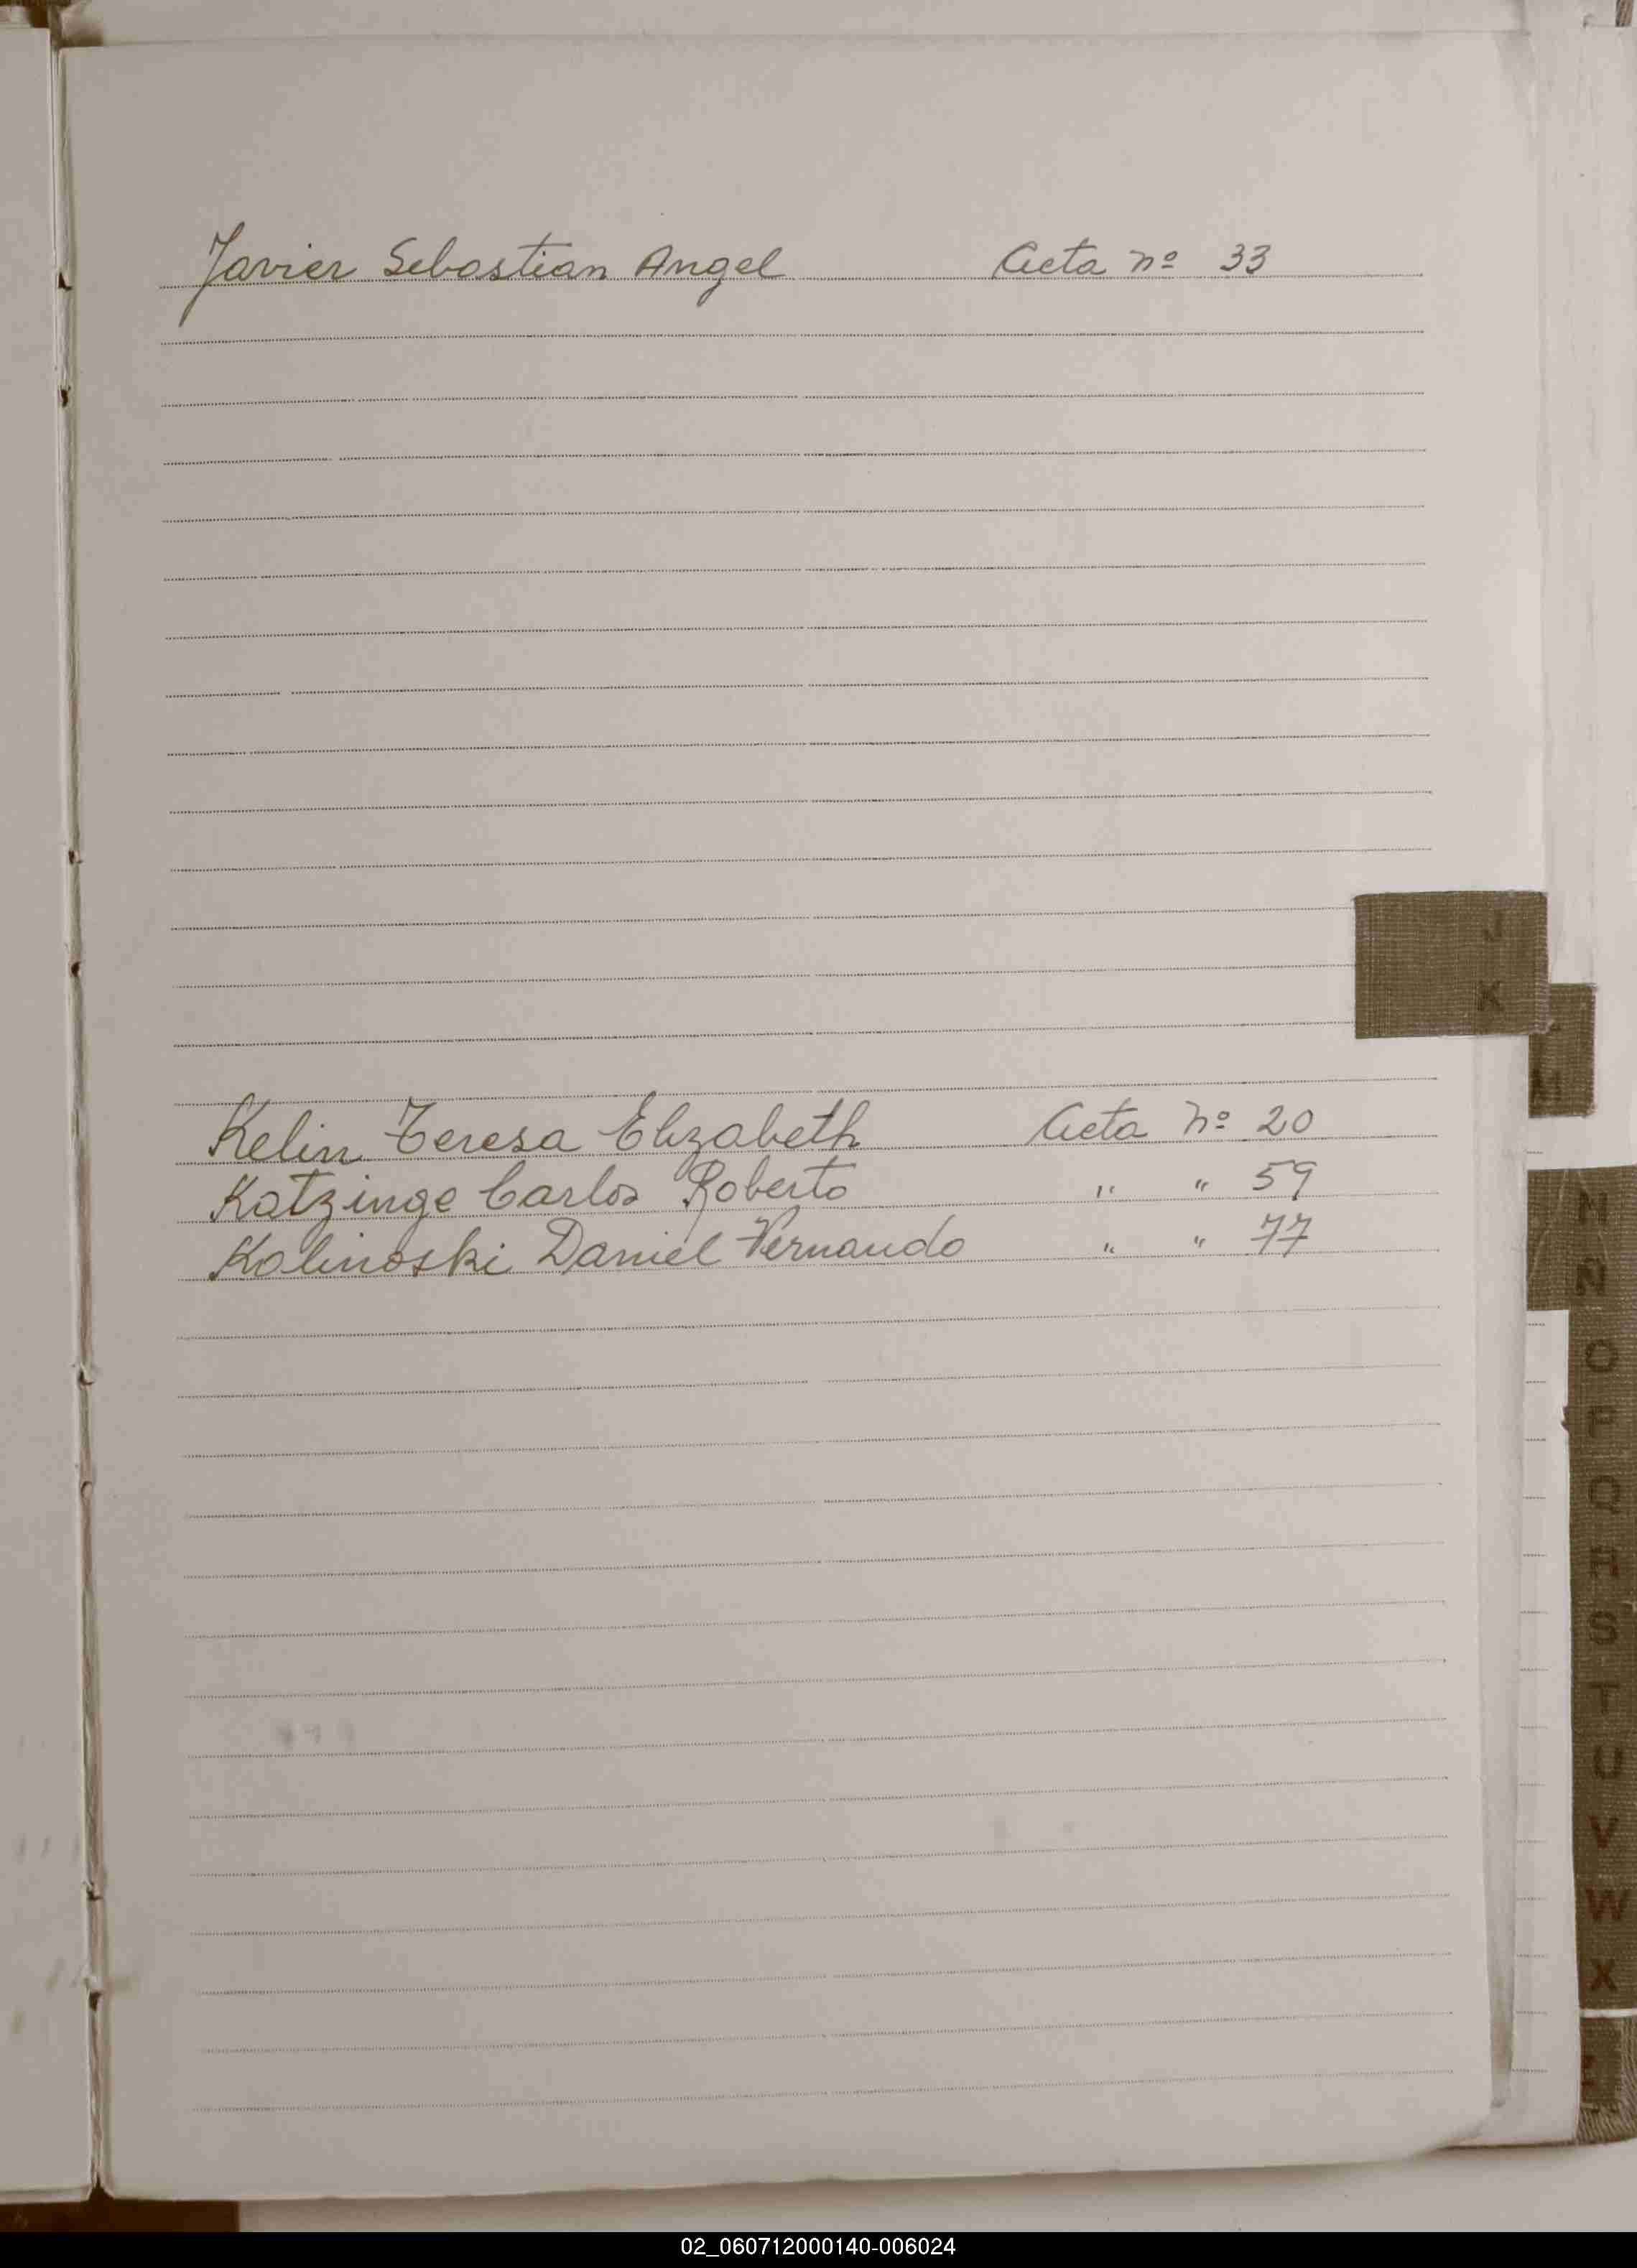 Javier Sebastian Angel Acta nº 33
J
K
Kelin Teresa Elizabeth Acta nº 20
Katzinge Carlos Roberto " " 59
Kalinoski Daniel Fernando " " 77
M
N
Ñ
O
P
Q
R
S
T
U
V
W
X
02_060712000140-006024